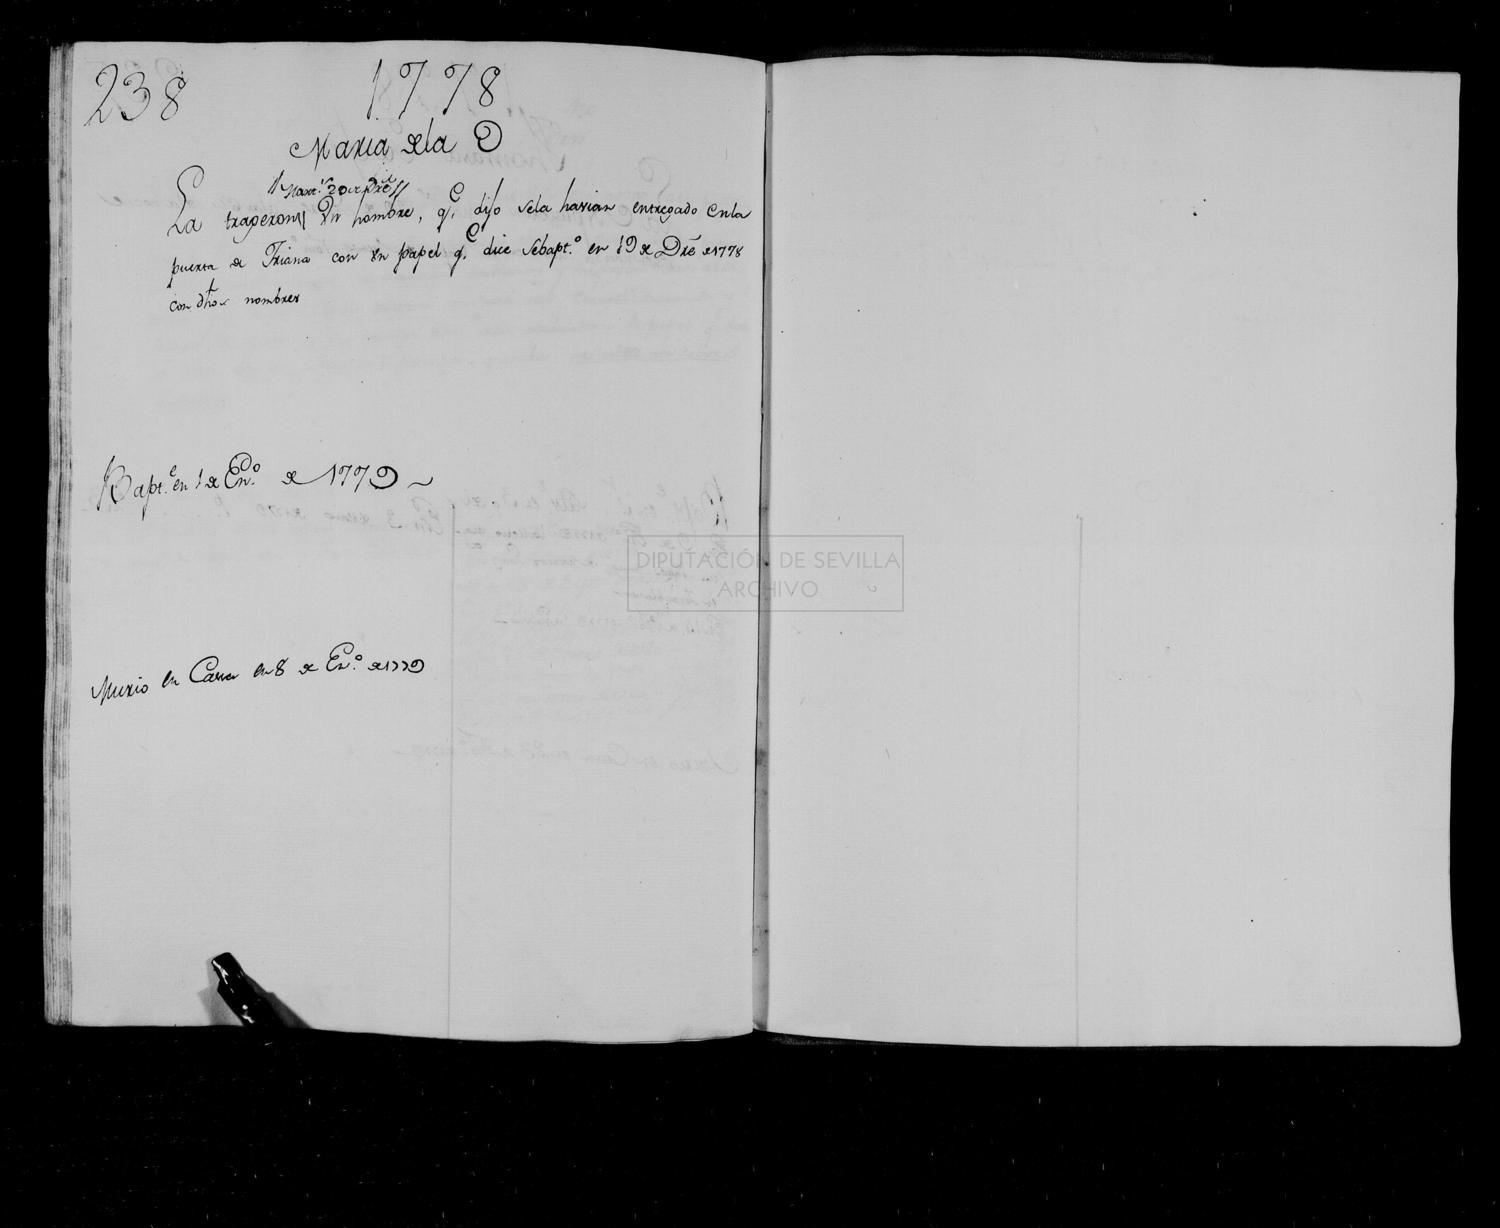 238 1778
Maria dela O
// Mart.s 29 de Dre //
La trageron // Un hombre, q.e dijo sela havian entregado enla
puerta de Triana con un papel q.e dice Sebapt.o en 19 de Dre de 1778
con dhos nombres
Bapt.e en 1 de En.o de 1779
DIPUTACIÓN DE SEVILLA
ARCHIVO
Murio en Casa en 8 de En.o de 1779